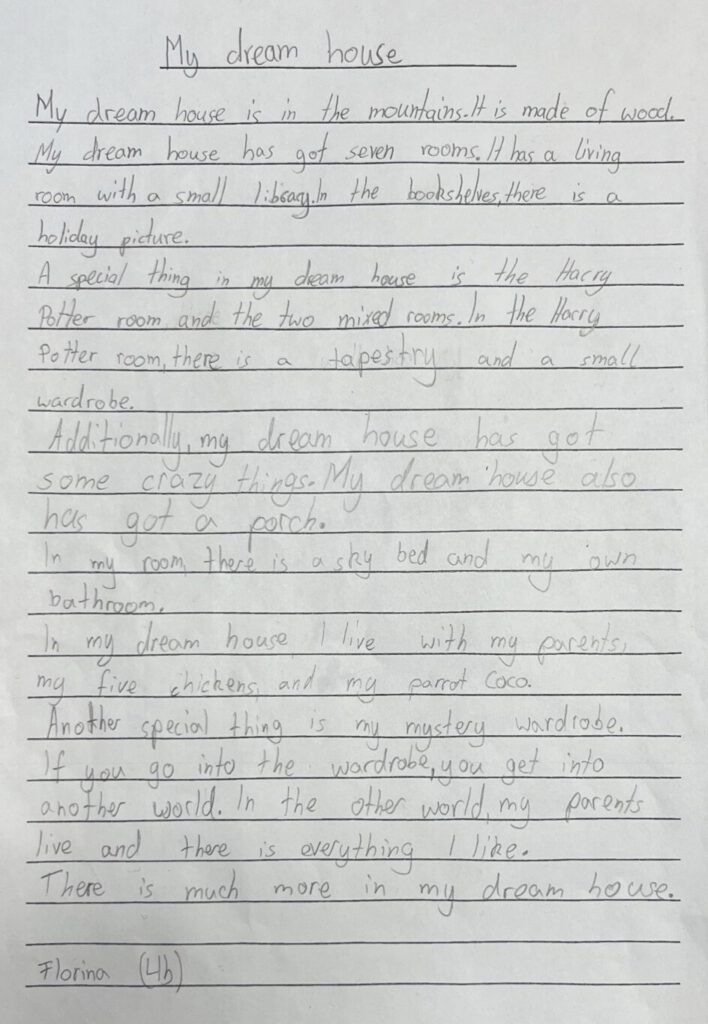 My dream house
My dream house is in the mountains. It is made of wood.
My dream house has got seven rooms. It has a living
room with a small library. In the bookshelves, there is a
holiday picture.
A special thing in my dream house is the Harry
Potter room and the two mixed rooms. In the Harry
Potter room, there is a tapestry and a small
wardrobe.
Additionally, my dream house has got
some crazy things. My dream house also
has got a porch.
In my room, there is a sky bed and my own
bathroom.
In my dream house, I live with my parents,
my five chickens, and my parrot Coco.
Another special thing is my mystery wardrobe.
If you go into the wardrobe, you get into
another world. In the other world, my parents
live and there is everything I like.
There is much more in my dream house.
Florina (4b)